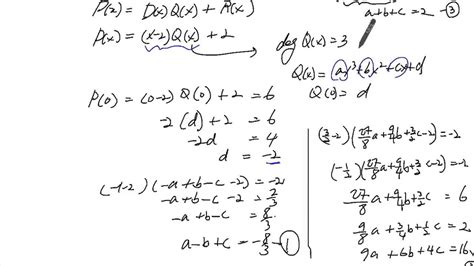 P(2) = D(x)Q(x) + R(x)
P(x) = (x-2)Q(x) + 2
a+b+c = 2 - ③
deg Q(x) = 3
Q(x) = ax³+bx²+cx+d
Q(0) = d
P(0) = (0-2) Q(0) + 2 = 6
-2 (d) + 2 = 6
-2d = 4
d = -2
(-1-2) (-a+b-c-2) = -2
-a+b-c-2 = 2/3
-a+b-c = 8/3
a-b+c = -8/3 - ①
(3/2-2)(27/8a+9/4b+3/2c-2) = -2
(-1/2)(27/8a+9/4b+3/2c-2) = -2
27/8a+9/4b+3/2c = 6
9/8a+3/4b+1/2c = 2
9a+6b+4c = 16